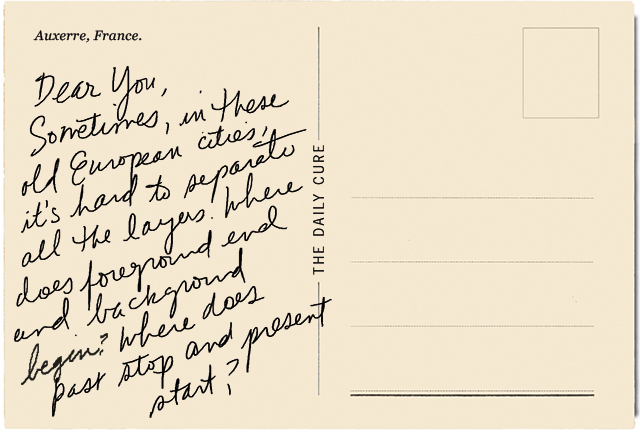 Auxerre, France.
Dear You,
Sometimes, in these
old European cities,
it's hard to separate
all the layers. Where
does foreground end
and background
begin? Where does
past stop and present
start?
THE DAILY CURE